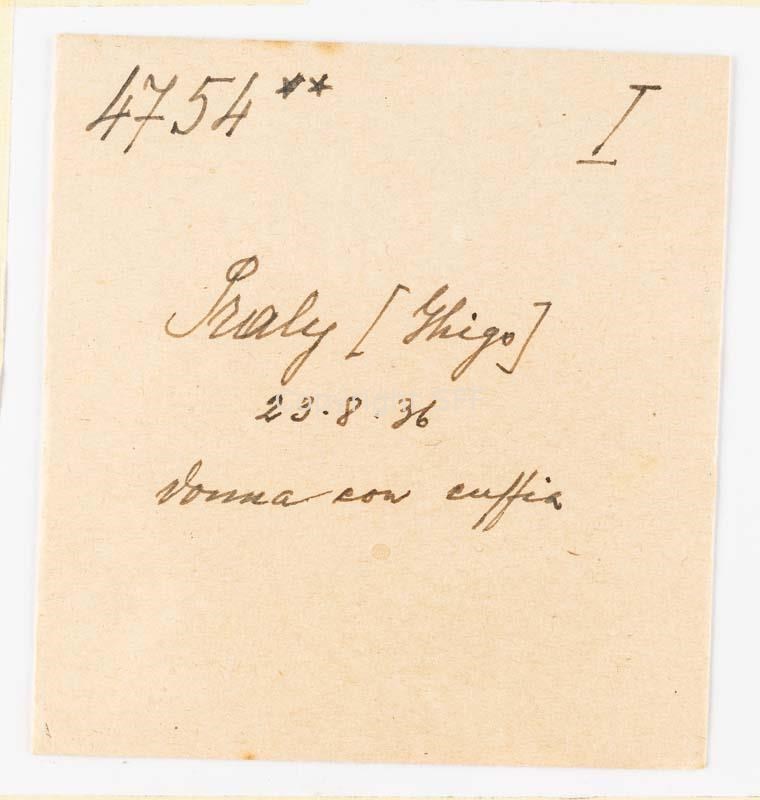 4754** I
Praly [Ghigo]
23.8.36
donna con cuffia